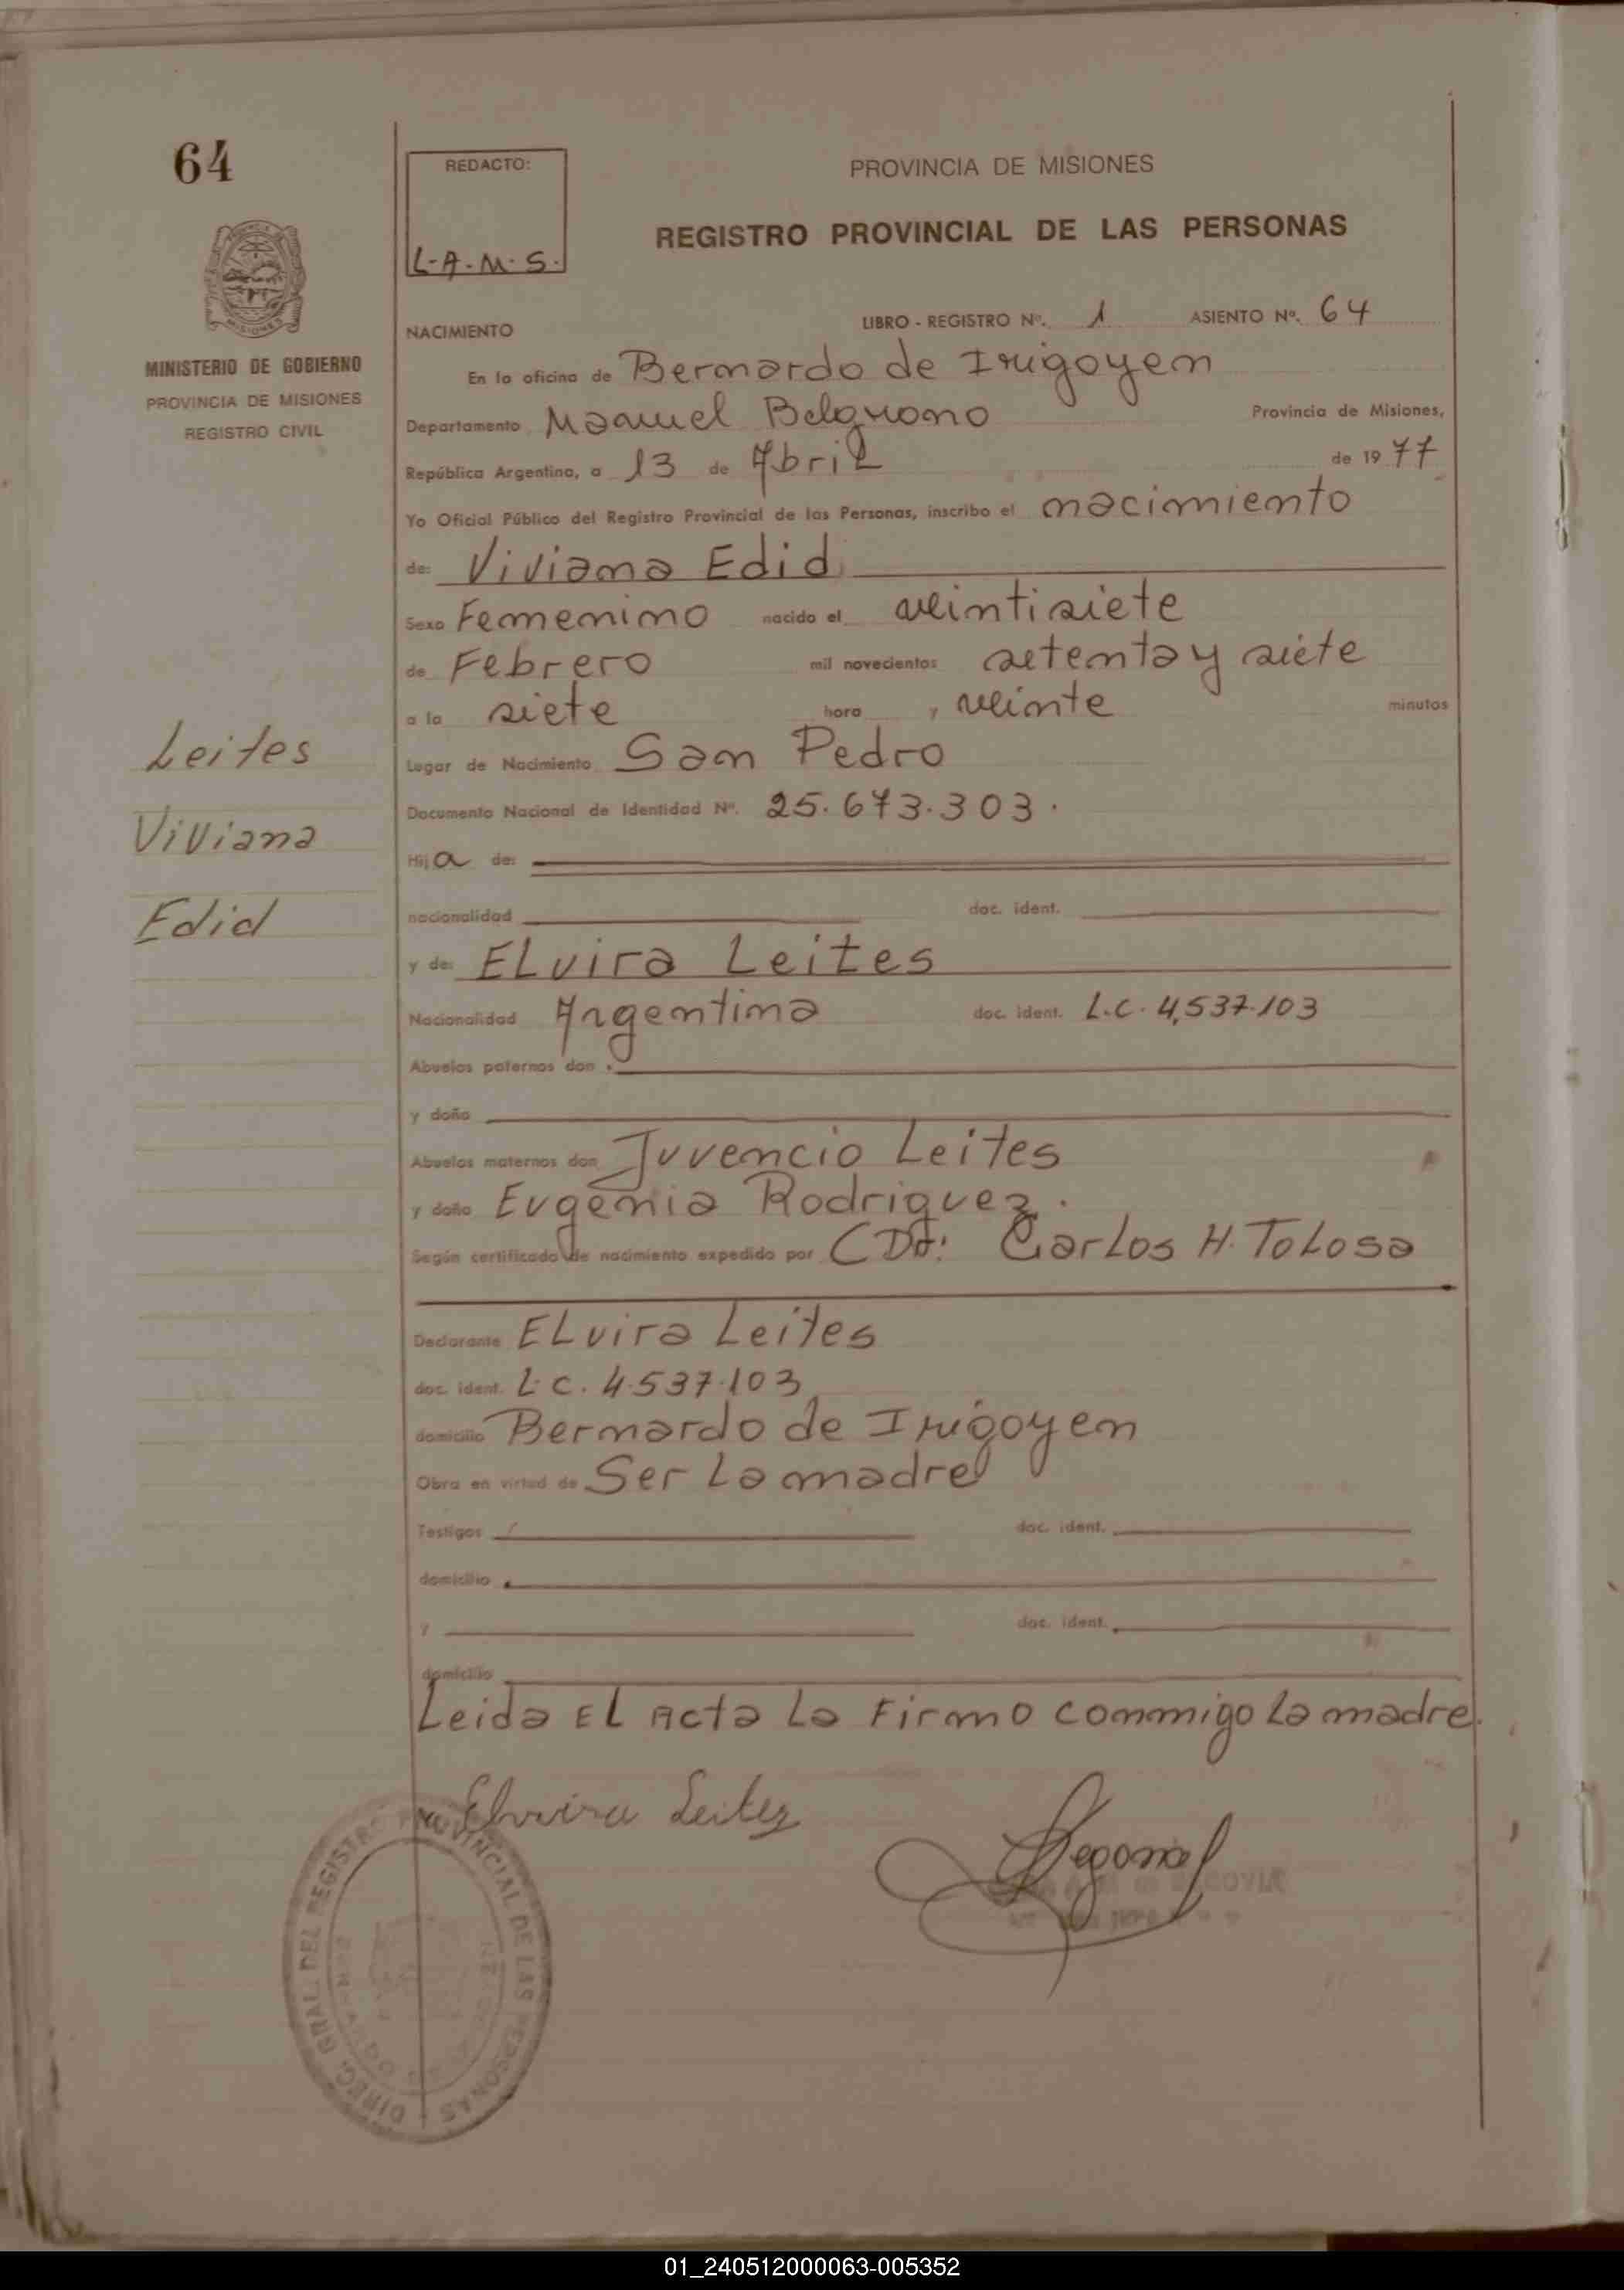 64
MINISTERIO DE GOBIERNO
PROVINCIA DE MISIONES
REGISTRO CIVIL
Leites
Viviana
Edid
REDACTO:
L-A-M-S.
PROVINCIA DE MISIONES
REGISTRO PROVINCIAL DE LAS PERSONAS
NACIMIENTO LIBRO - REGISTRO Nº. 1 ASIENTO Nº. 64
En la oficina de Bernardo de Irigoyen
Departamento Manuel Belgrano Provincia de Misiones,
República Argentina, a 13 de Abril de 1977
Yo Oficial Público del Registro Provincial de las Personas, inscribo el nacimiento
de: Viviana Edid
Sexo Femenino nacido el veintisiete
de Febrero mil novecientos setenta y siete
a la siete hora y veinte minutos
Lugar de Nacimiento San Pedro
Documento Nacional de Identidad Nº. 25.673.303.
Hija de:
nacionalidad doc. ident.
y de: ELvira Leites
Nacionalidad Argentina doc. ident. L.C. 4,537.103
Abuelos paternos don
y doña
Abuelos maternos don Juvencio Leites
y doña Eugenia Rodriguez.
Según certificado de nacimiento expedido por Carlos H. ToLosa
Declarante ELvira Leites
doc. ident. L.C. 4.537.103
domicilio Bernardo de Irigoyen
Obra en virtud de Ser La madre
Testigos doc. ident.
domicilio
y doc. ident.
domicilio
Leida EL Acta La Firmo conmigo La madre.
Elvira Leites
DIREC. GRAL. DEL REGISTRO PROVINCIAL DE LAS PERSONAS
01_240512000063-005352